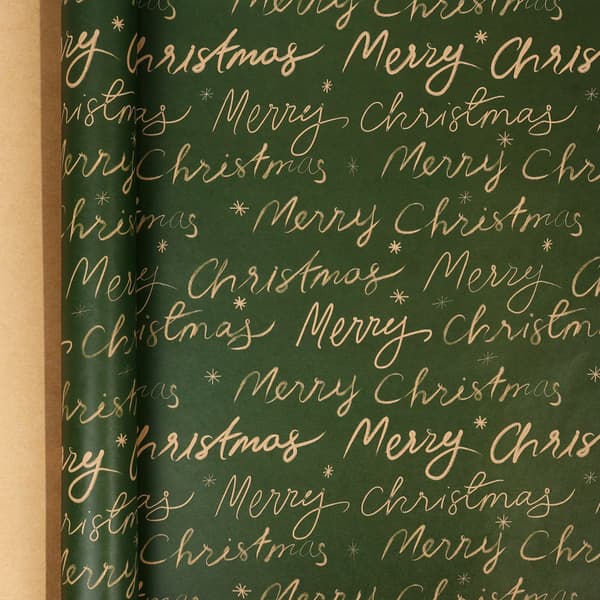 Merry Christmas
Christmas Merry Chris
ristmas Merry Christmas
Merry Christmas Merry
Christmas Merry Christmas
Merry Christmas Merry
Christmas Merry Christm
Christmas Merry Christmas
Christmas Merry Chris
ristmas Merry Christmas
Merry Christmas Merry
Merry Christmas